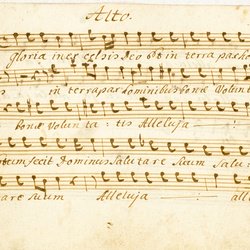 Alto.
gloria in ex celsis deo et in terra pax ho
is in terra pax hominibus bonæ Volunt
bonæ Volun ta : tis Alleluja
tum fecit Dominus Salutare Suum Salu :
are suum Alleluja all